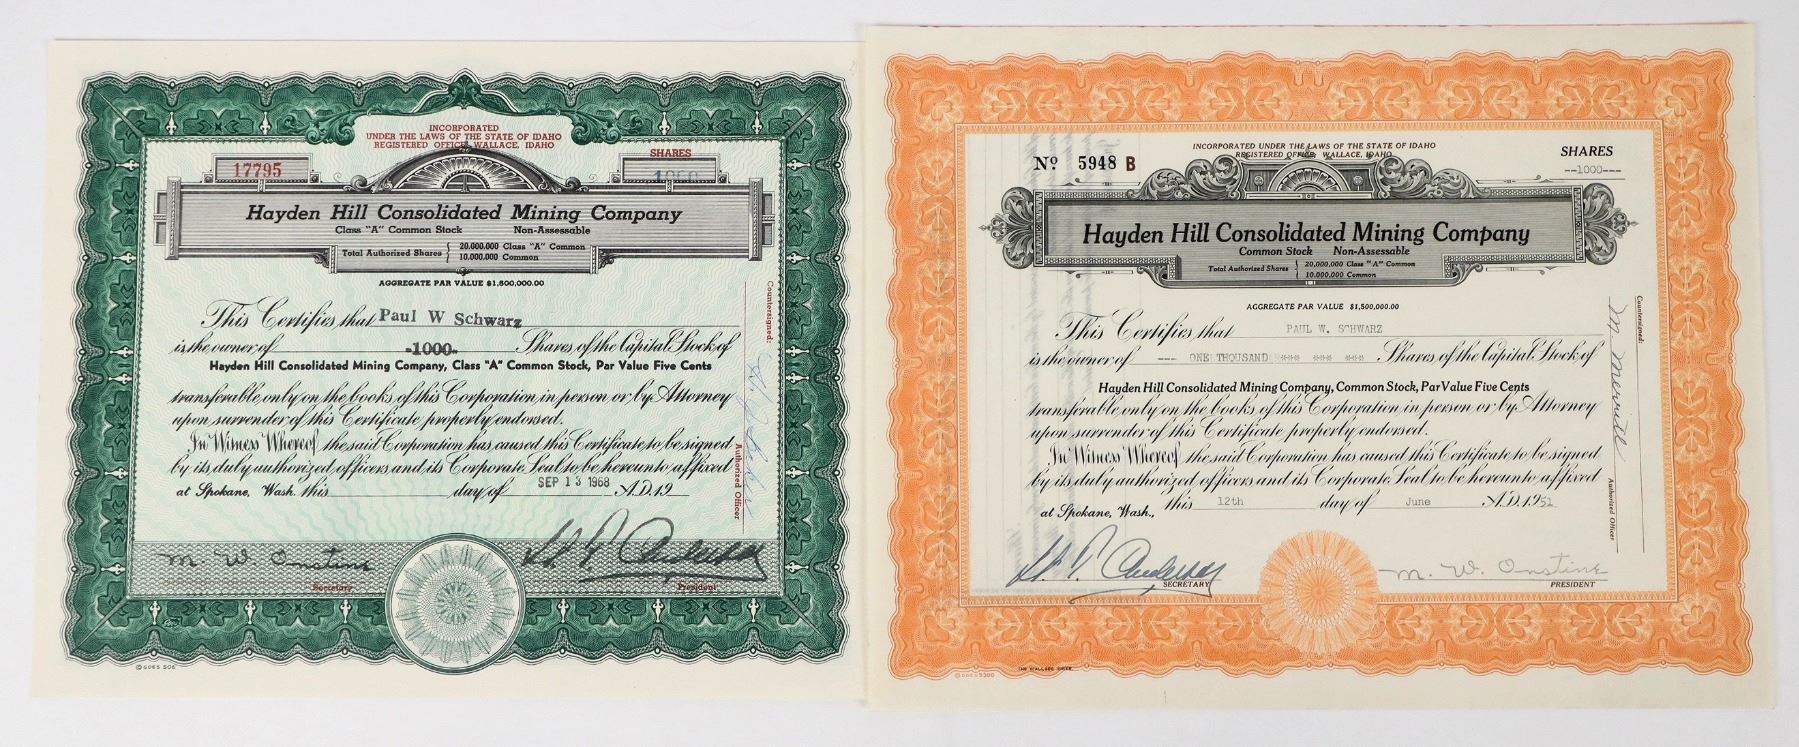 INCORPORATED
UNDER THE LAWS OF THE STATE OF IDAHO
REGISTERED OFFICE, WALLACE, IDAHO
17795
SHARES
1000
Hayden Hill Consolidated Mining Company
Class "A" Common Stock Non-Assessable
Total Authorized Shares { 20,000,000 Class "A" Common
10,000,000 Common
AGGREGATE PAR VALUE $1,500,000.00
This Certifies that Paul W Schwarz
is the owner of -1000- Shares of the Capital Stock of
Hayden Hill Consolidated Mining Company, Class "A" Common Stock, Par Value Five Cents
transferable only on the books of this Corporation in person or by Attorney
upon surrender of this Certificate properly endorsed.
In Witness Whereof the said Corporation has caused this Certificate to be signed
by its duly authorized officers and its Corporate Seal to be hereunto affixed
at Spokane, Wash. this day of SEP 13 1968 A.D. 19
Countersigned:
Authorized Officer
M. W. Onstine
Secretary
President
© GOES 506
INCORPORATED UNDER THE LAWS OF THE STATE OF IDAHO
REGISTERED OFFICE, WALLACE, IDAHO
No 5948 B
SHARES
--1000---
Hayden Hill Consolidated Mining Company
Common Stock Non-Assessable
Total Authorized Shares { 20,000,000 Class "A" Common
10,000,000 Common
AGGREGATE PAR VALUE $1,500,000.00
This Certifies that PAUL W. SCHWARZ
is the owner of --- ONE THOUSAND *** *** *** Shares of the Capital Stock of
Hayden Hill Consolidated Mining Company, Common Stock, Par Value Five Cents
transferable only on the books of this Corporation in person or by Attorney
upon surrender of this Certificate properly endorsed.
In Witness Whereof the said Corporation has caused this Certificate to be signed
by its duly authorized officers and its Corporate Seal to be hereunto affixed
at Spokane, Wash., this 12th day of June A.D. 1951
Countersigned:
M. Merrill
Authorized Officer
SECRETARY
M. W. Onstine
PRESIDENT
THE WALLACE MINER
© GOES 5300